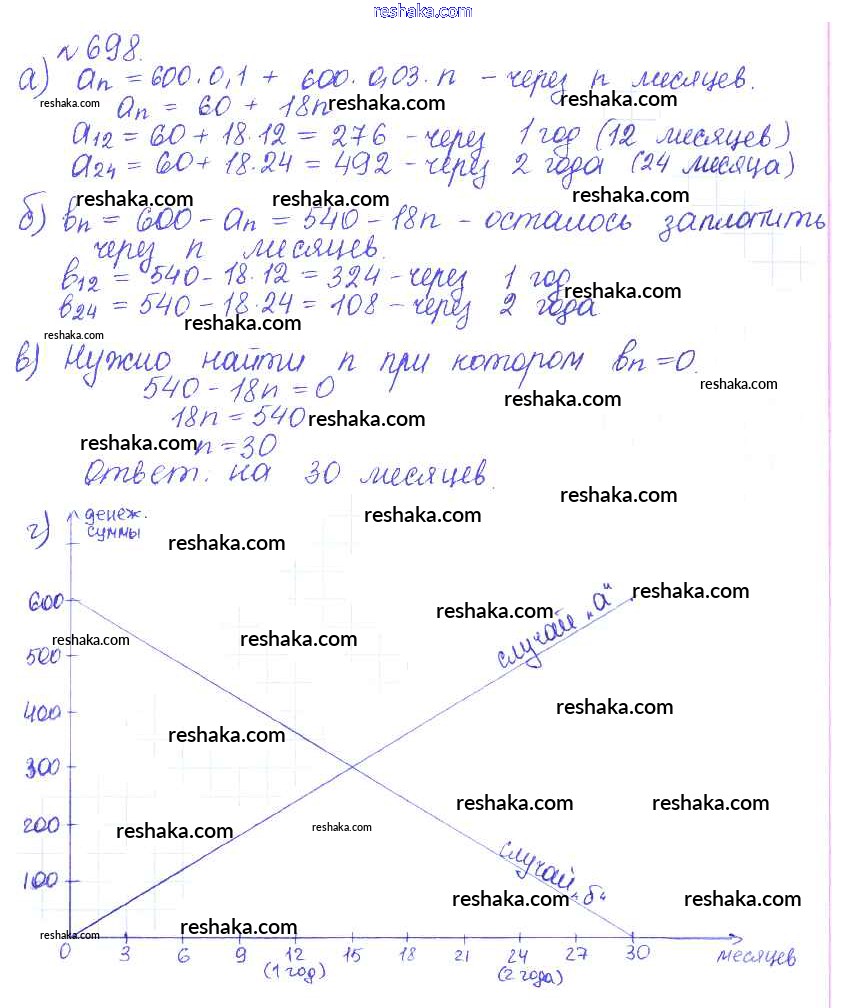 reshaka.com
№ 698.
а) aₙ = 600·0,1 + 600·0,03·n – через n месяцев.
reshaka.com
aₙ = 60 + 18n reshaka.com reshaka.com
a₁₂ = 60 + 18·12 = 276 – через 1 год (12 месяцев)
a₂₄ = 60 + 18·24 = 492 – через 2 года (24 месяца)
reshaka.com reshaka.com reshaka.com
б) bₙ = 600 – aₙ = 540 – 18n – осталось заплатить
через n месяцев.
b₁₂ = 540 – 18·12 = 324 – через 1 год
reshaka.com
b₂₄ = 540 – 18·24 = 108 – через 2 года
reshaka.com
reshaka.com
в) Нужно найти n при котором bₙ = 0.
540 – 18n = 0 reshaka.com
reshaka.com
18n = 540 reshaka.com
reshaka.com n = 30
Ответ. на 30 месяцев.
reshaka.com
г) денеж. reshaka.com
суммы reshaka.com
600 случай „а“ reshaka.com
reshaka.com
reshaka.com reshaka.com
500
400 reshaka.com
reshaka.com
300
reshaka.com reshaka.com
200 reshaka.com reshaka.com
100 случай „б“
reshaka.com reshaka.com
reshaka.com reshaka.com
0 3 6 9 12 15 18 21 24 27 30 месяцев
(1 год) (2 года)